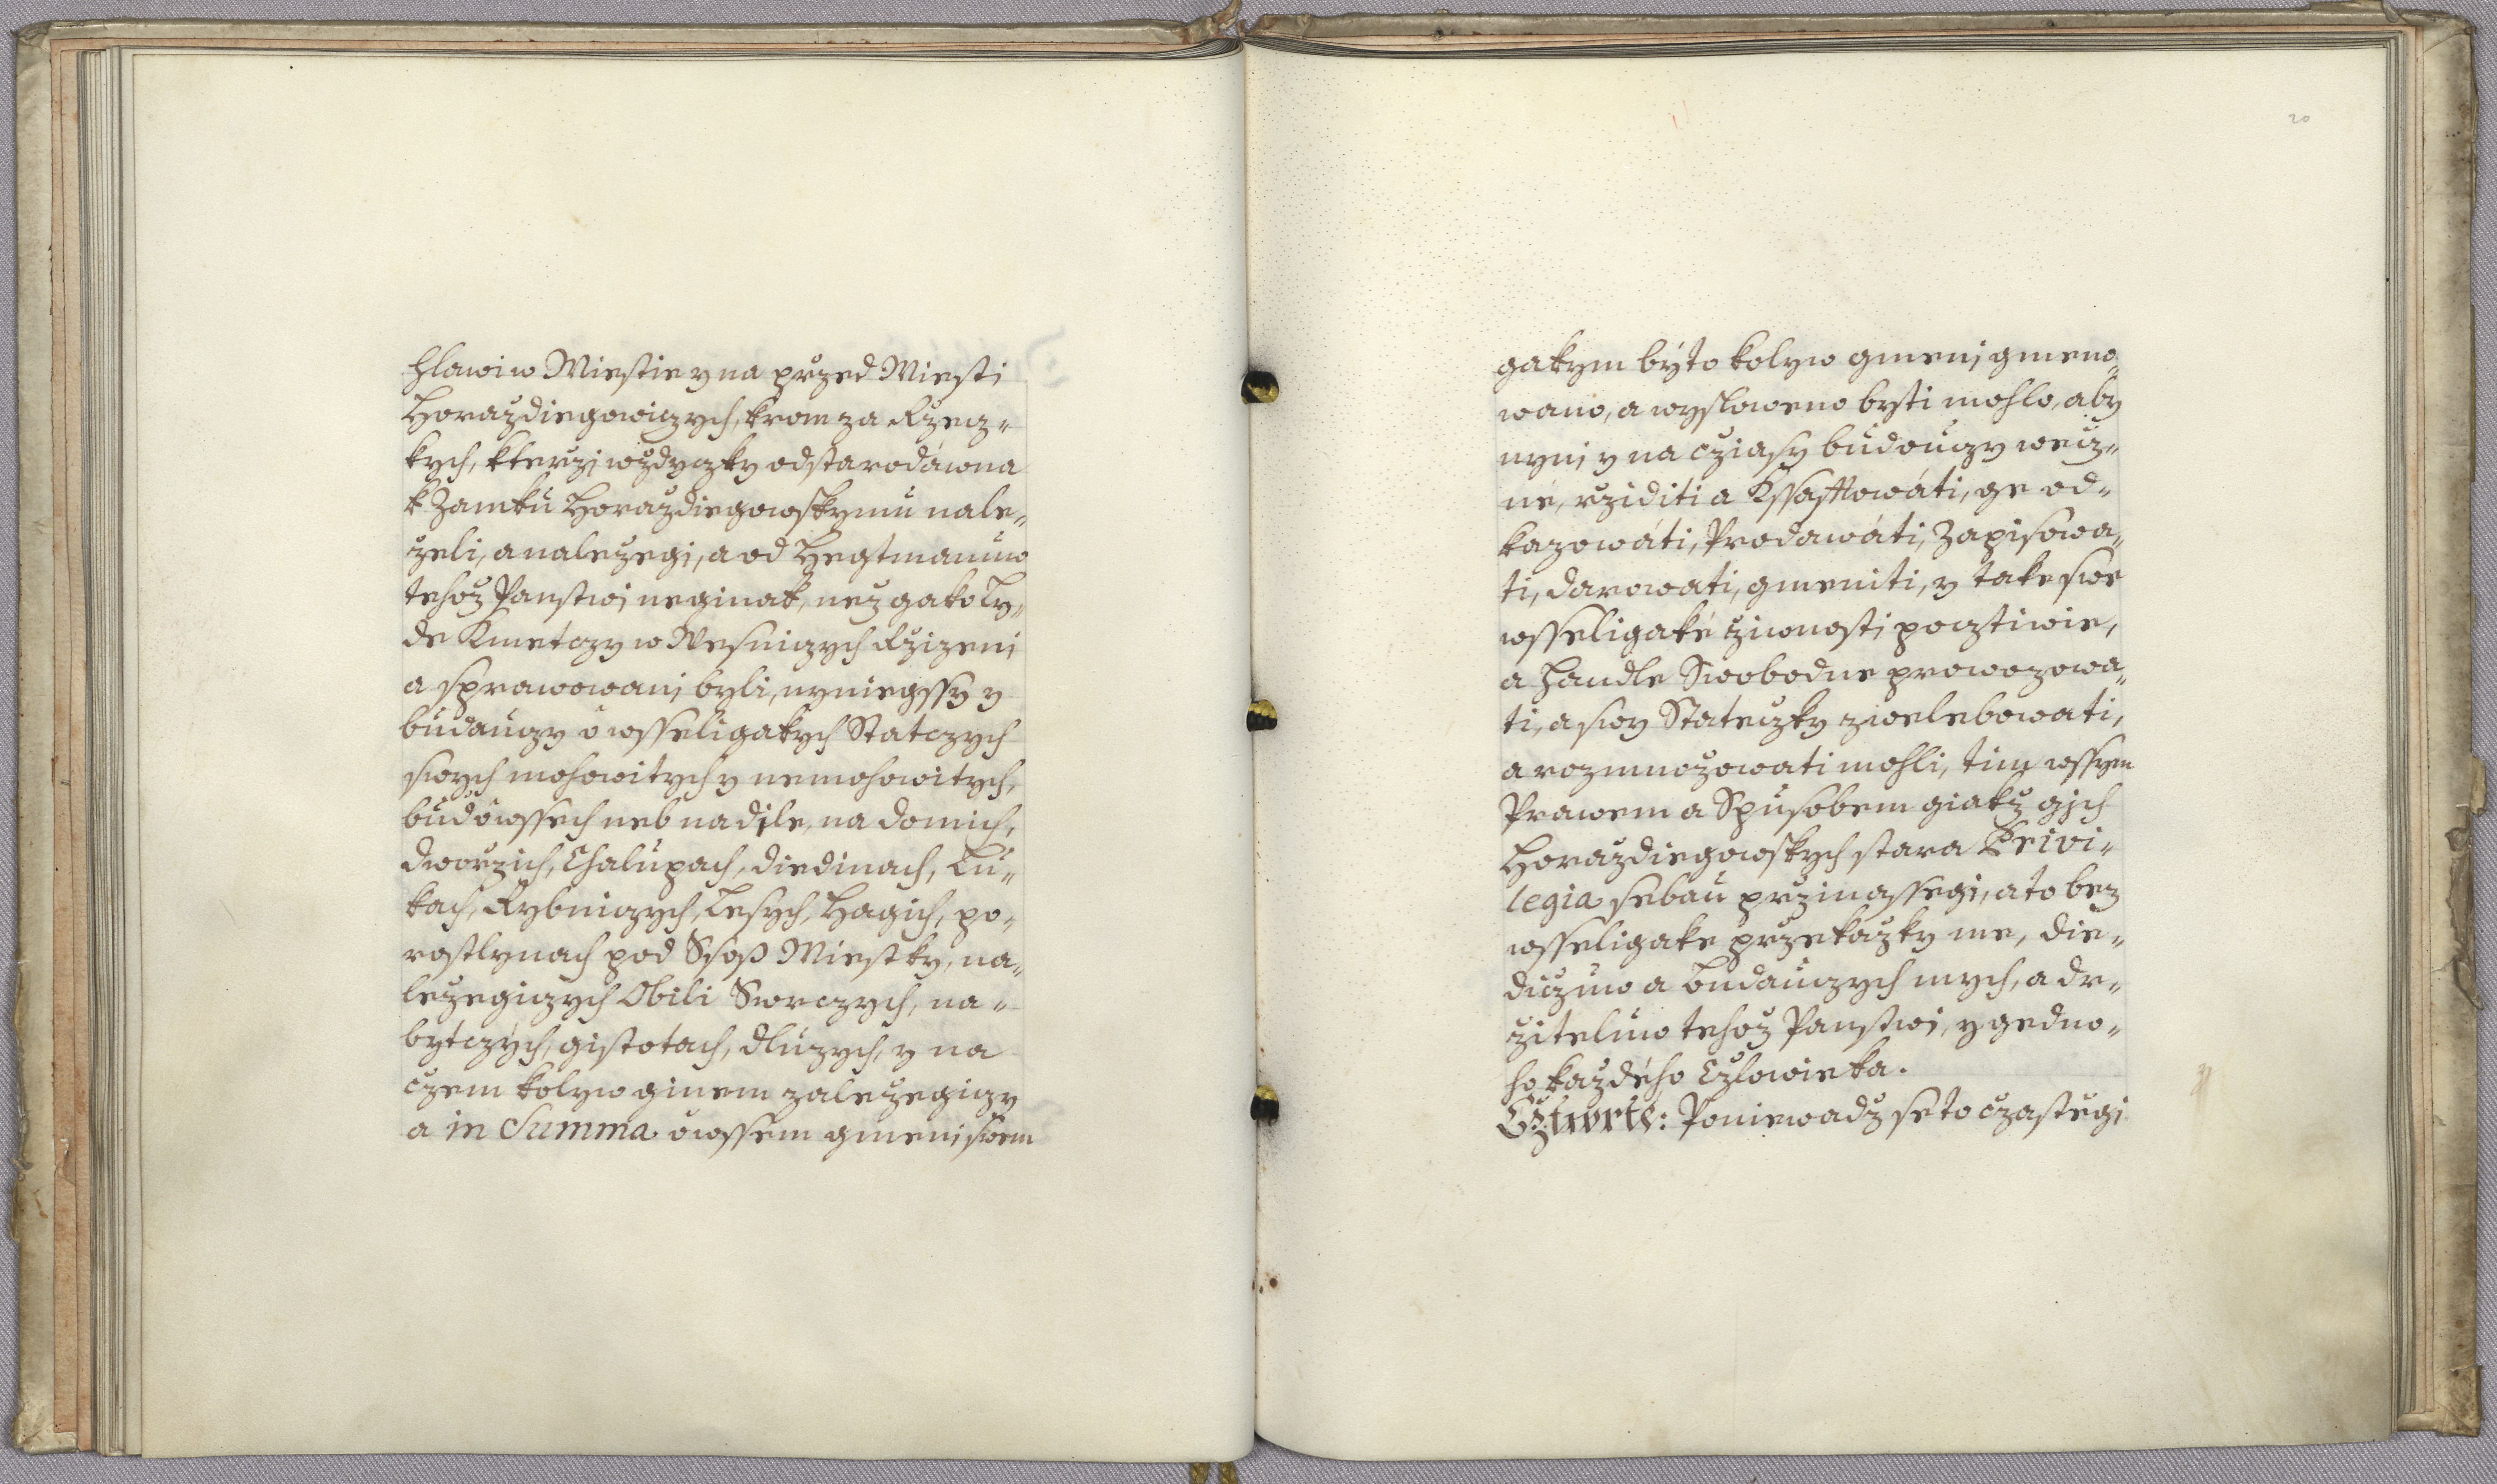 hlawi w Miestie y na przed Miesti
Horaždiegowiczych, krom za Rzecz„
kych, kterzi wždyczky odstarodáwna
k Zamku Horaždiegowskymu nale„
želi, a naležegi, a od Hegtmanuw
tehož Panstwi neginak, než gako Ly„
de Kmetczy w Wesniczych Rzizeni
a sprawowani byli, nyniegssy y
budauczy o wsseligakych Statczych
swych mohowitych y nemohowitych,
bud o wssech neb na dile, na domich,
dworzich, Chalupach, diedinach, Lu„
kach, Rybniczych, Lesych, Hagich, po„
rostlynach pod Ssos Miestky, na„
ležegiczych Obili Sworczych, na„
bytczých, gistotach, dluzych, y na
czem kolyw ginem zaležegiczy
a in Summa o wssem gmeni swem
20
gakym býto kolyw gmeni gmeno„
wano, a wysloweno bysti mohlo, aby
nyni y na cziasy budouczy wecz„
né, rziditi a Kssafftowáti, ge od„
kazowáti, Prodawáti, Zapisowa„
ti, darowati, gmeniti, y take swe
wsseligaké žiwnosti pocztiwie,
a Handle Swobodne prowozowa„
ti, a swy Statečzky zwelebowati,
a rozmnožowati mohli, tim wssym
Prawem a Spusobem giakž gich
Horaždiegowskych stara Privi„
legia sebau przinassegi, a to bez
wsseligake przekážky me, die„
diczuw a budauczych mych, a dr„
žiteluw tehož Panstwi, y gedno„
ho každého Czlowieka.
Cžtwrté: Poniewadž se to czastegi